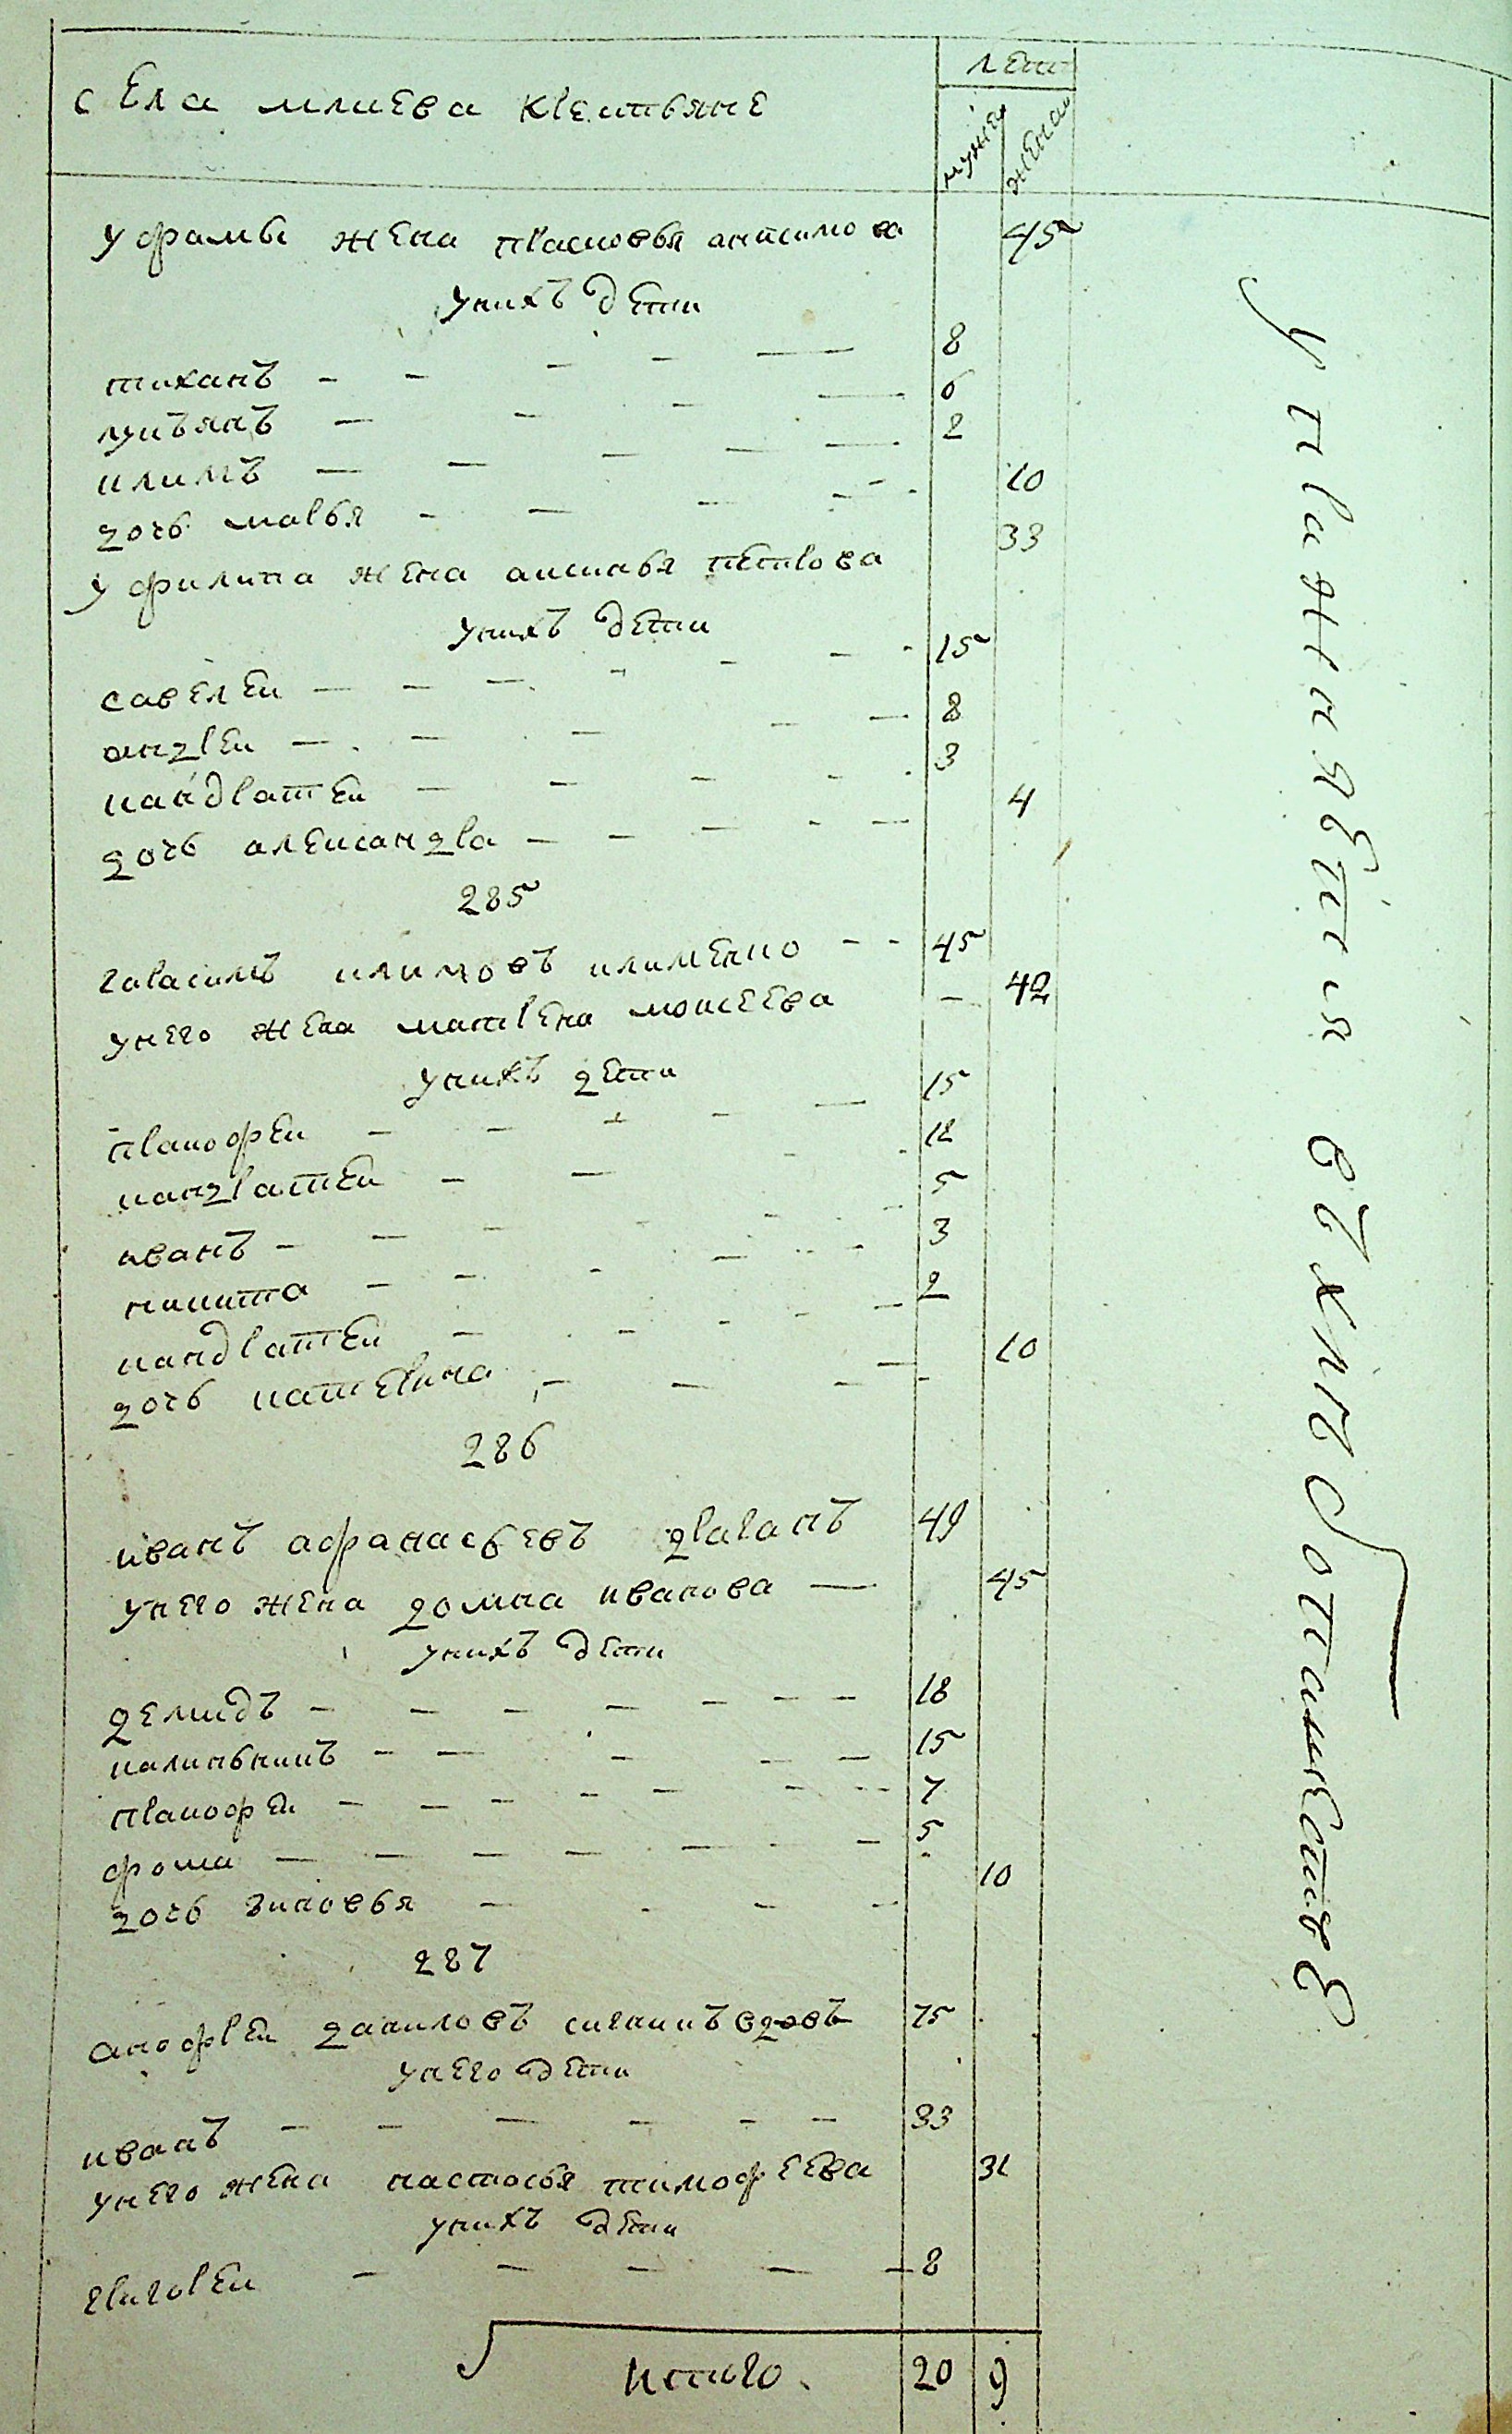 села млиева крестьяне
лета
мужеска
женска
у фомы жена прасковья анисимова 45
у нихъ дети
тиханъ 8
лукъянъ 6
климъ 2
дочь марья 10
у филипа жена аксинья петрова 33
у нихъ дети
савелеи 15
андреи 8
кандратеи 3
дочь александра 4
285
гарасимъ климовъ клименко 45
у него жена матрена моисеева 42
у нихъ дети
пракофеи 15
кандратеи 12
иванъ 5
никита 3
кандратеи 2
дочь катерина 10
286
иванъ афанасьевъ драганъ 49
у него жена домна иванова 45
у нихъ дети
демидъ 18
калиньникъ 15
пракофеи 7
фома 5
дочь зиновья 10
287
анофреи даниловъ вдовъ 75
у него дети
иванъ 33
у него жена настасья тимофеева 31
у нихъ дети
григореи 8
итого 20 9
упражнября